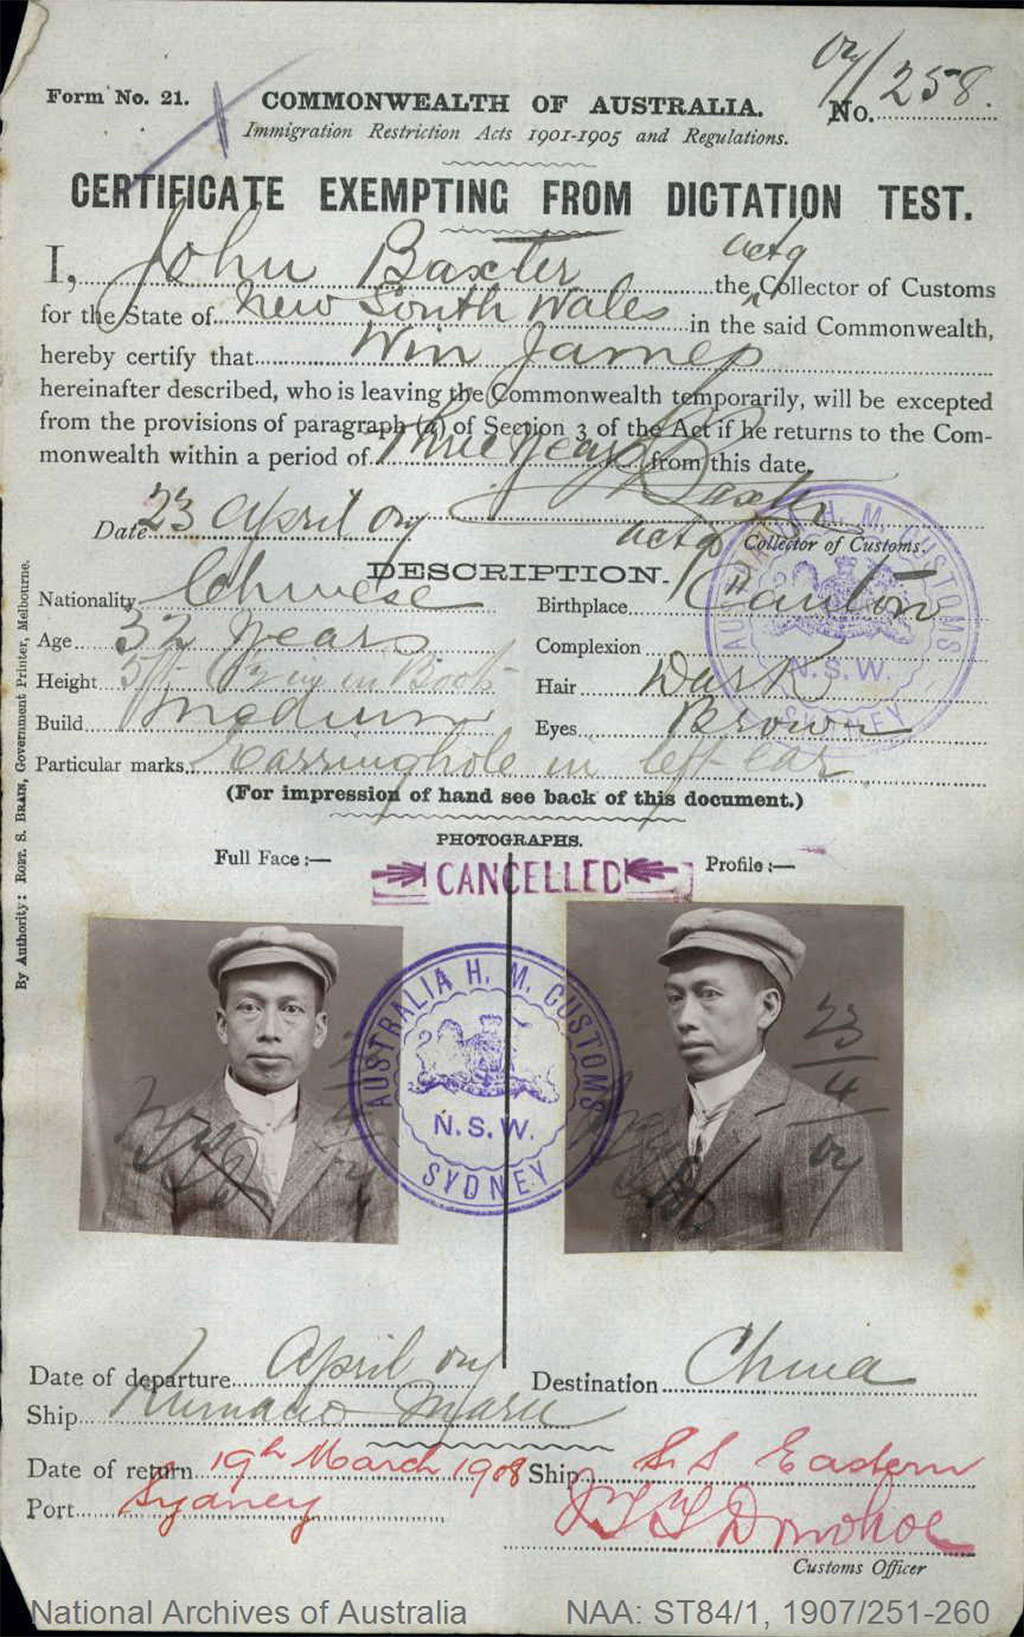 07/258.
Form No. 21.
COMMONWEALTH OF AUSTRALIA.
No.
Immigration Restriction Acts 1901-1905 and Regulations.
CERTIFICATE EXEMPTING FROM DICTATION TEST.
I, John Baxter actg the Collector of Customs
for the State of New South Wales in the said Commonwealth,
hereby certify that Win James
hereinafter described, who is leaving the Commonwealth temporarily, will be excepted
from the provisions of paragraph (a) of Section 3 of the Act if he returns to the Com-
monwealth within a period of Three years from this date.
Baxter
Date 23 April 07 actg Collector of Customs.
DESCRIPTION.
Nationality Chinese Birthplace Canton
Age 32 years Complexion
Height 5ft in Boots Hair Dark
Build Medium Eyes Brown
Particular marks Earringhole in left ear
(For impression of hand see back of this document.)
PHOTOGRAPHS.
Full Face :— CANCELLED Profile :—
AUSTRALIA H. M. CUSTOMS
N.S.W.
SYDNEY
AUSTRALIA H. M. CUSTOMS
N.S.W.
SYDNEY
23
4
07
Date of departure April 07 Destination China
Ship Kumano Maru
Date of return 19th March 1908 Ship S.S Eastern
Port Sydney Donohoe
Customs Officer
By Authority: ROBT. S. BRAIN, Government Printer, Melbourne.
National Archives of Australia NAA: ST84/1, 1907/251-260